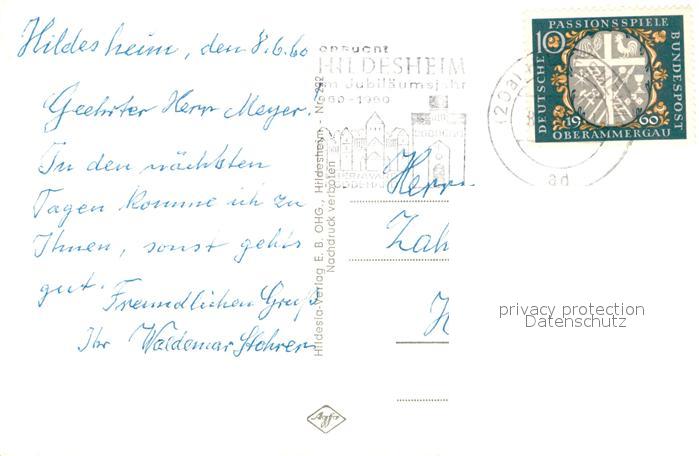 Hildesheim, den 8.6.60
Geehrter Herr Meyer.
In den nächsten
Tagen komme ich zu
Ihnen, sonst geht's
gut.
Freundlichen Gruß
Ihr Waldemar
Hildesia-Verlag E. B. OHG., Hildesheim, Nr. 292
Nachdruck verboten
Agfa
HILDESHEIM
im Jubiläumsjahr
PASSIONSSPIELE
10
DEUTSCHE BUNDESPOST
1960
OBERAMMERGAU
Herrn
Zah
privacy protection
Datenschutz